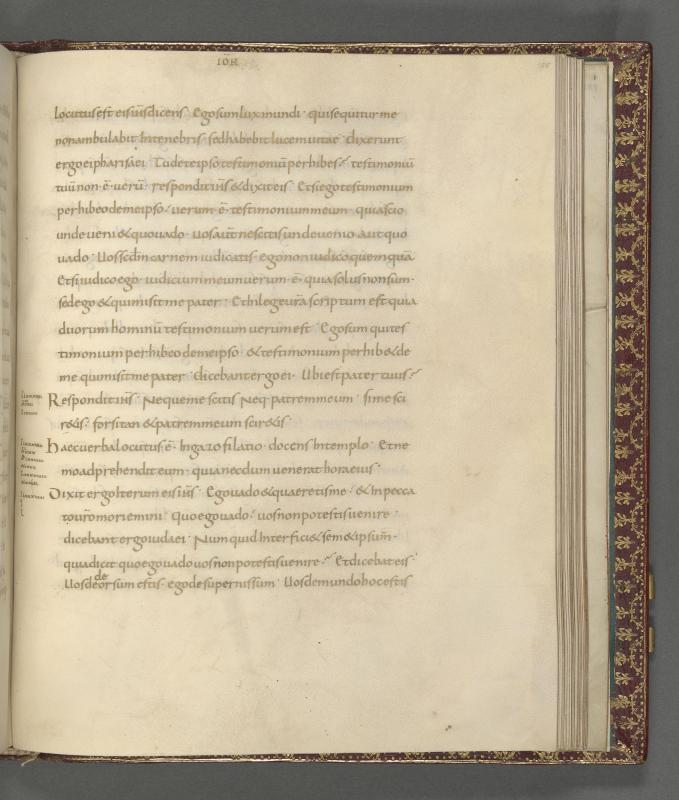 IOH
locutus est eis ihs dicens · Ego sum lux mundi · qui sequitur me
non ambulabit in tenebris · sed habebit lucem uitae · dixerunt
ergo ei pharisaei · Tu de te ipso testimoniū perhibes · testimoniū
tuū non · ē · uerū · respondit ihs & dixit eis · Et si ego testimonium
perhibeo de me ipso · uerum · ē · testimonium meum · quia scio
unde ueni & quo uado · uos aut nescitis unde uenio aut quo
uado · Uos scdm carnem iudicatis · ego non iudico quemquā
Et si iudico ego · iudicium meum uerum · ē · quia solus non sum ·
sed ego & qui misit me pater · Et in lege urā scriptum est quia
duorum hominū testimonium uerum est · Ego sum qui tes
timonium perhibeo de me ipso · & testimonium perhib& de
me qui misit me pater · dicebant ergo ei · Ubi est pater tuus
Respondit ihs · Neque me scitis neq· patrem meum · si me sci
r&is · forsitan & patrem meum scir&is ·
Haec uerba locutus · ē · in gazofilatio · docens in templo · Et ne
mo adprehendit eum · quia necdum uenerat hora eius ·
Dixit ergo iterum eis ihs · Ego uado & quaeretis me · & in pecca
to uro moriemini · quo ego uado · uos non potestis uenire ·
dicebant ergo iudaei · Numquid interfici& sem& ipsum ·
quia dicit quo ego uado uos non potestis uenire · Et dicebat eis ·
Uos de deorsum estis · ego de supernis sum · Uos de mundo hoc estis